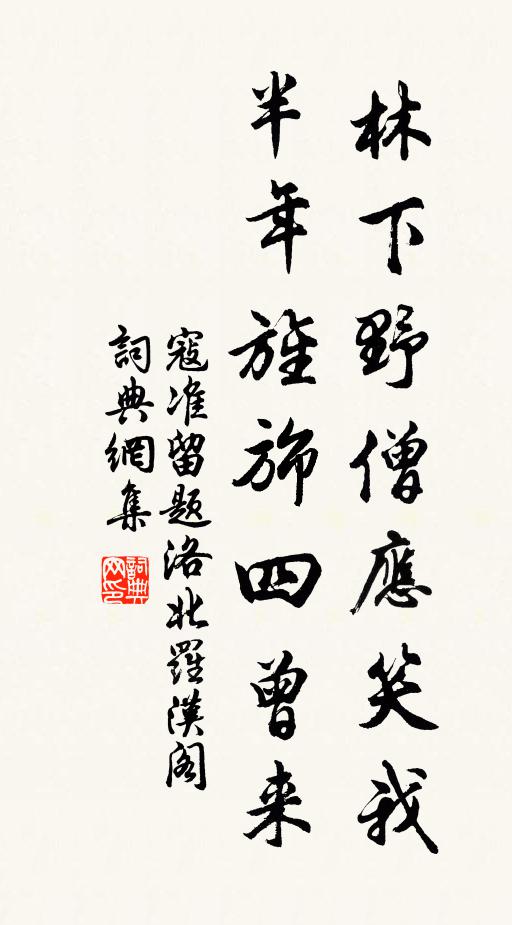 林下野僧應笑我
半年旌旆四曾来
寇准留题洛北羅漢阁
詞典網集
詞典网印